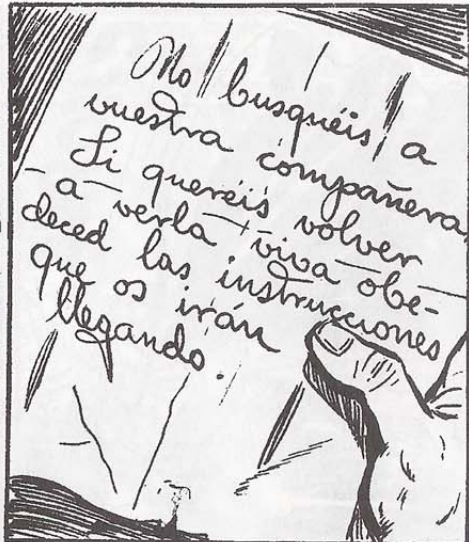 No busquéis a
vuestra compañera.
Si queréis volver
a verla viva obe-
deced las instrucciones
que os irán
llegando.